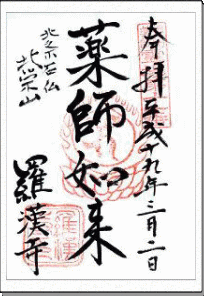 奉拝 平成十九年三月二日
薬師如来
北崇山
羅漢寺